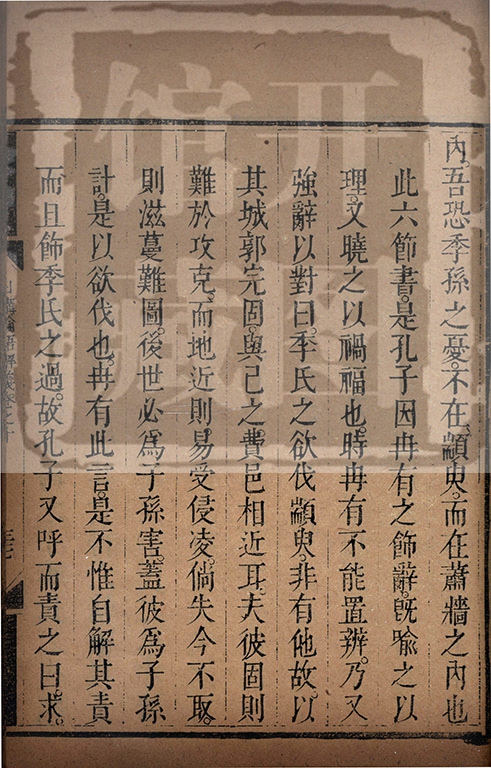 內。吾恐季孫之憂。不在顓臾。而在蕭牆之內也
此六節書。是孔子因冉有之飾辭。旣喻之以
理。又曉之以禍福也。時冉有不能置辨。乃又
強辭以對曰。季氏之欲伐顓臾。非有他故。以
其城郭完固。與己之費邑相近耳。夫彼固則
難於攻克。而地近則易受侵凌。倘失今不取。
則滋蔓難圖。後世必爲子孫害。蓋彼爲子孫
計。是以欲伐也。冉有此言。是不惟自解其責
而且飾季氏之過。故孔子又呼而責之曰。求。
开图
馆藏